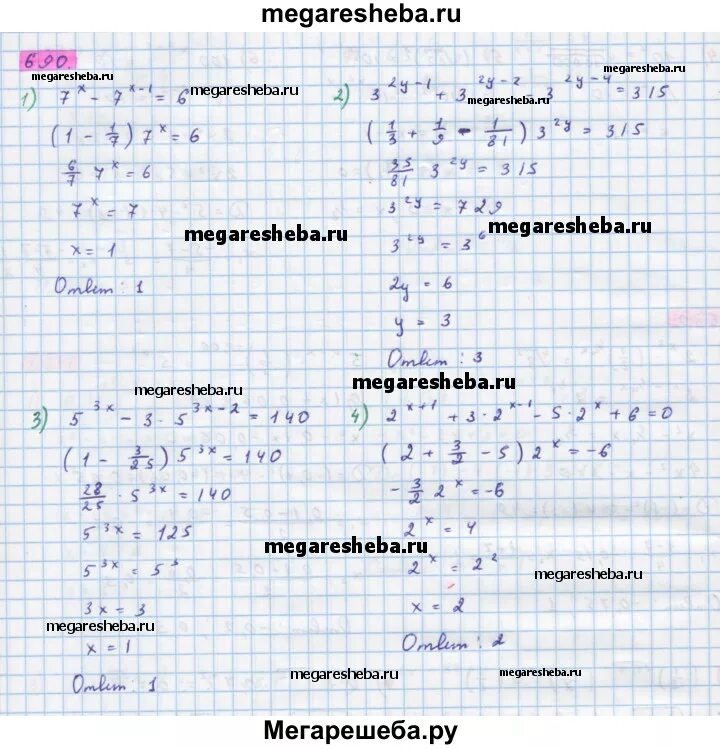 megaresheba.ru
690.
megaresheba.ru megaresheba.ru
1) 7^x - 7^(x-1) = 6 megaresheba.ru
(1 - 1/7) 7^x = 6
6/7 7^x = 6
7^x = 7
x = 1
megaresheba.ru
Ответ: 1
2) 3^(2y-1) + 3^(2y-2) 3^(2y-4) = 315
megaresheba.ru
(1/3 + 1/9 - 1/81) 3^(2y) = 315
35/81 3^(2y) = 315
3^(2y) = 729
3^(2y) = 3^6 megaresheba.ru
2y = 6
y = 3
Ответ: 3
megaresheba.ru megaresheba.ru
3) 5^(3x) - 3 · 5^(3x-2) = 140
(1 - 3/25) 5^(3x) = 140
28/25 · 5^(3x) = 140
5^(3x) = 125
5^(3x) = 5^3
3x = 3
megaresheba.ru
x = 1
Ответ: 1
4) 2^(x+1) + 3 · 2^(x-1) - 5 · 2^x + 6 = 0
(2 + 3/2 - 5) 2^x = -6
- 3/2 2^x = -6
2^x = 4
megaresheba.ru
2^x = 2^2 megaresheba.ru
x = 2
Ответ: 2
megaresheba.ru megaresheba.ru
Мегарешеба.ру